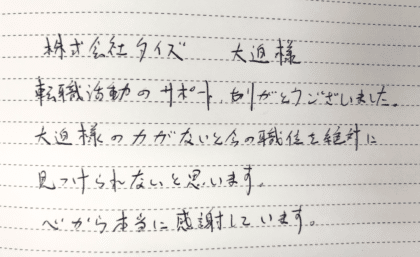 株式会社タイズ　大迫様
転職活動のサポート、ありがとうございました。
大迫様の力がないと今の職位を絶対に
見つけられないと思います。
心から本当に感謝しています。